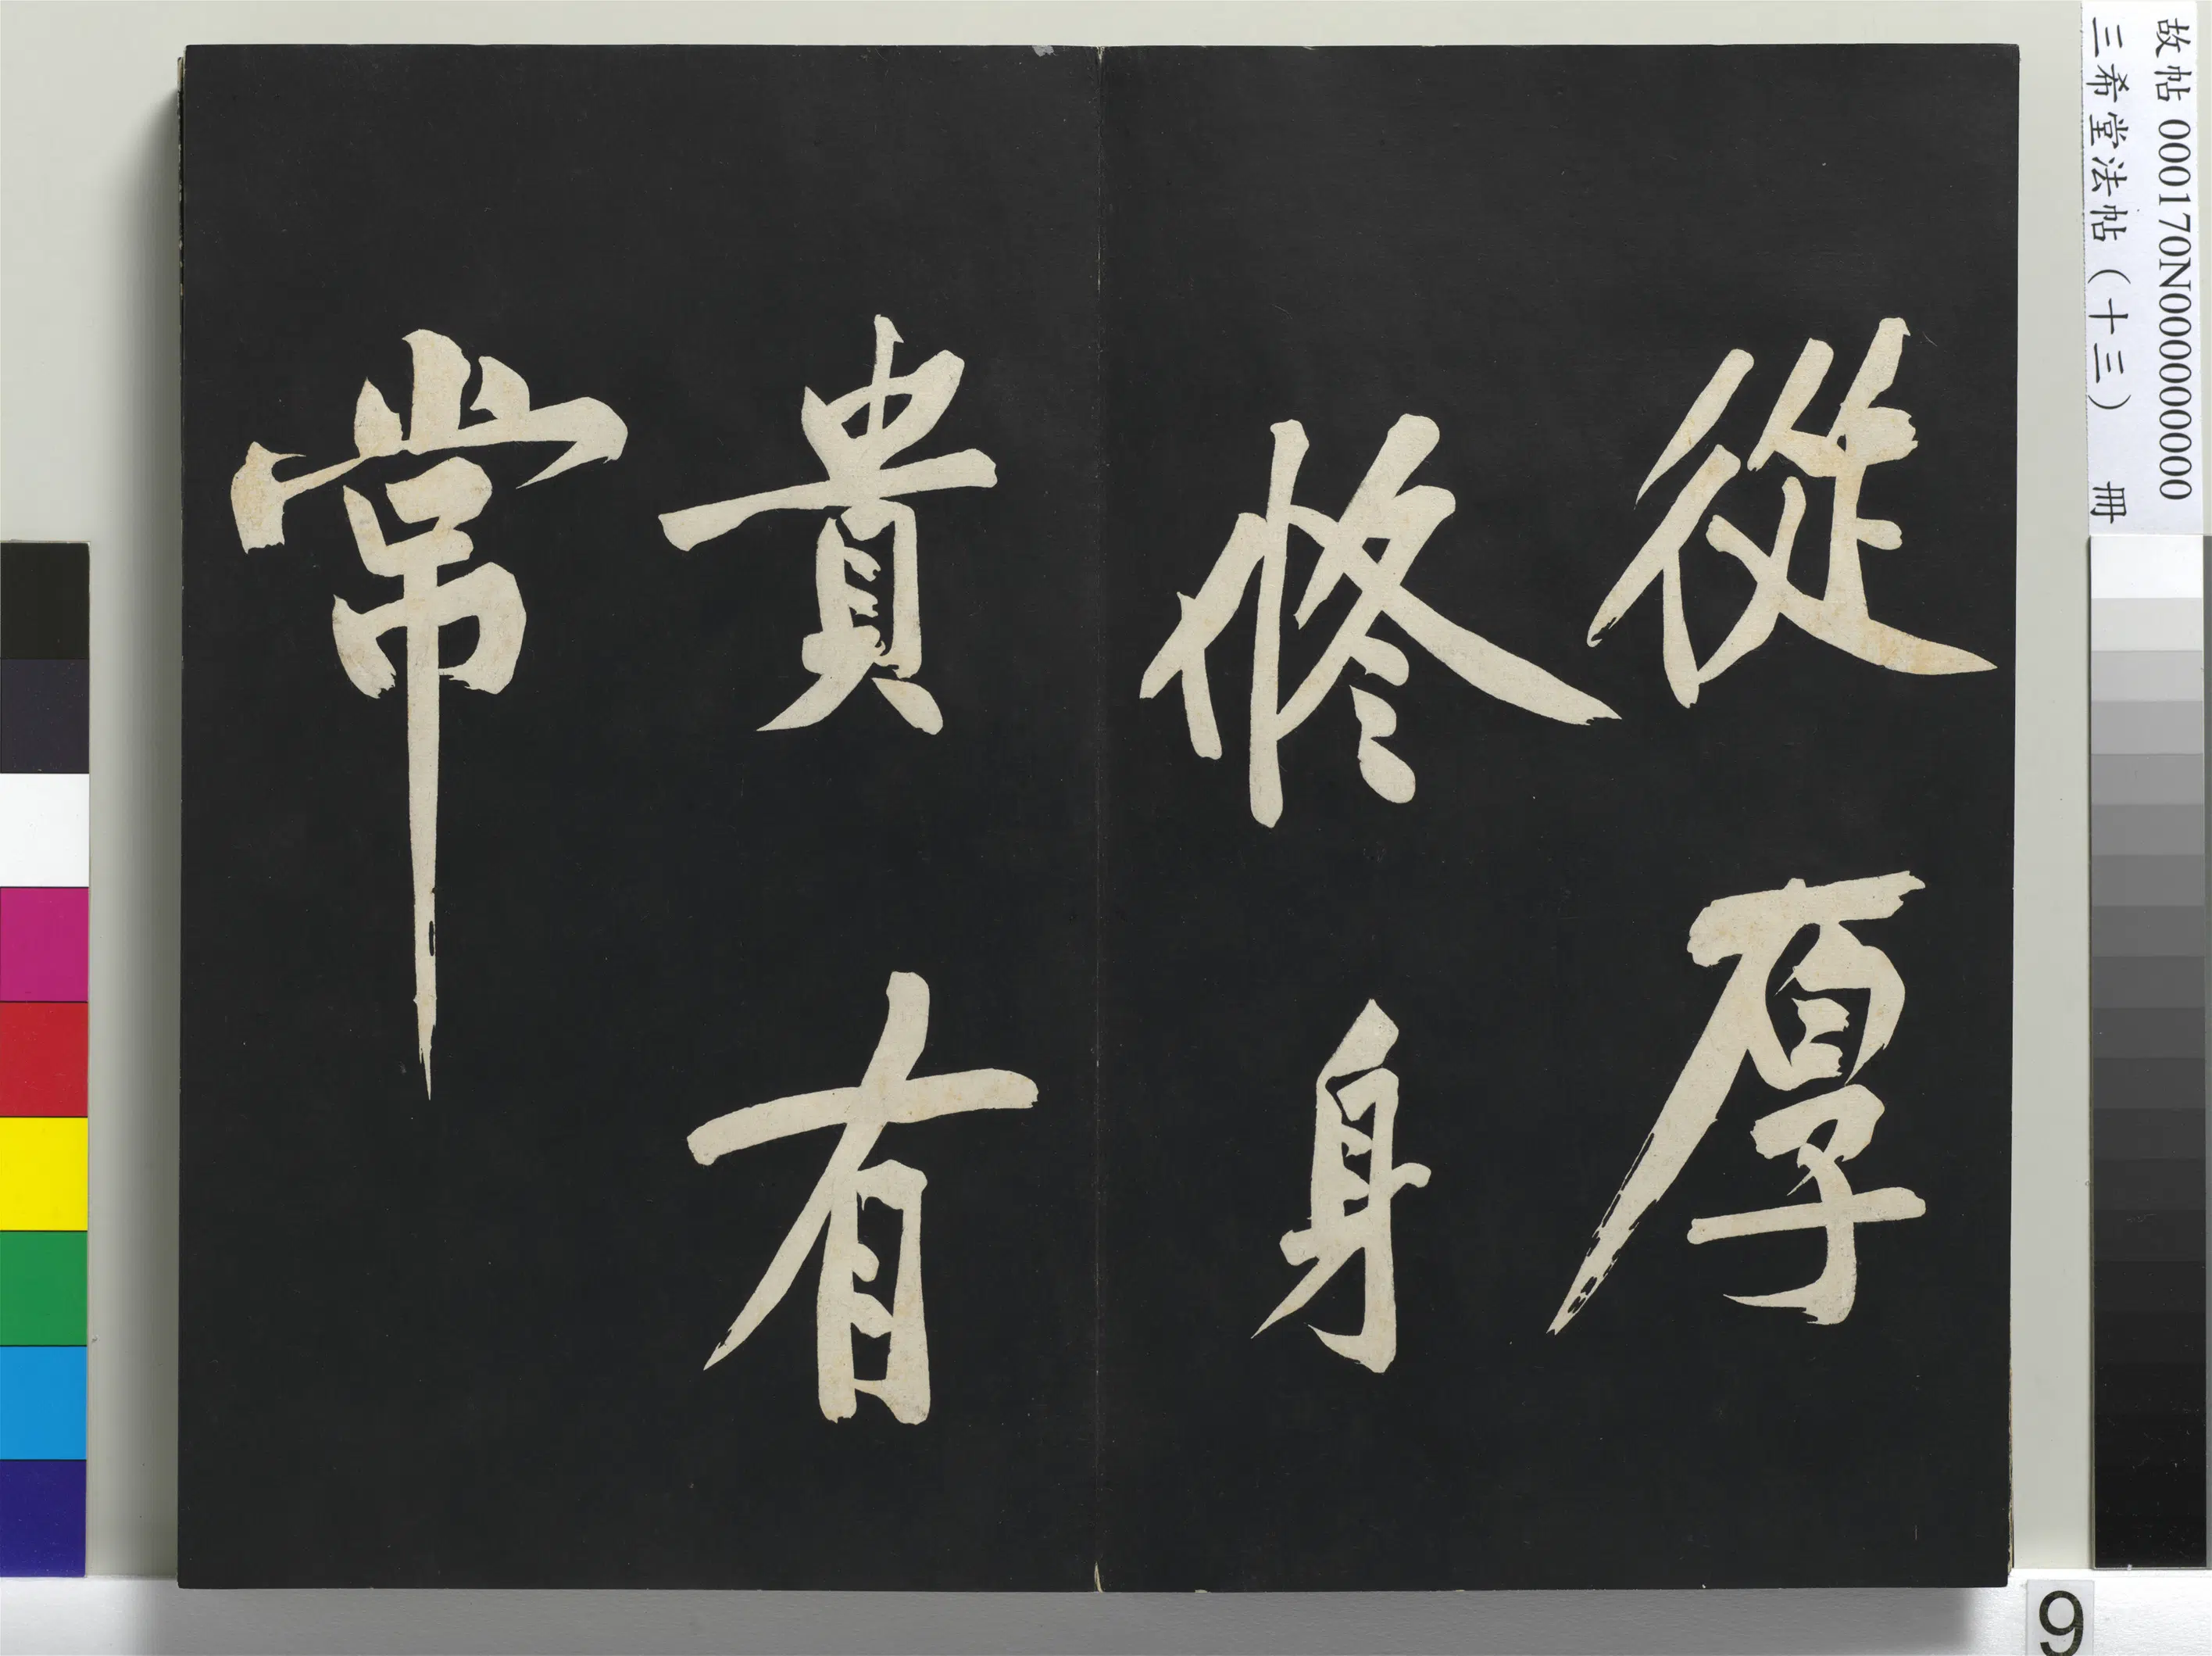 從厚
修身
貴有
常
故帖 000170N000000000
三希堂法帖（十三） 冊
9